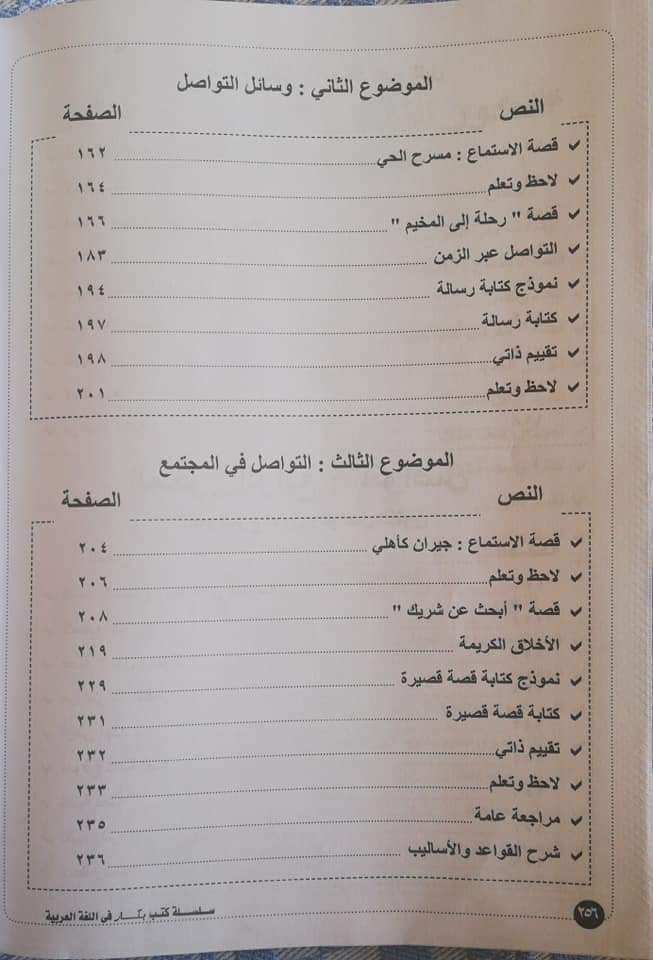 الموضوع الثاني : وسائل التواصل
النص الصفحة
✓ قصة الاستماع : مسرح الحي ١٦٢
✓ لاحظ وتعلم ١٦٤
✓ قصة " رحلة إلى المخيم " ١٦٦
✓ التواصل عبر الزمن ١٨٣
✓ نموذج كتابة رسالة ١٩٤
✓ كتابة رسالة ١٩٧
✓ تقييم ذاتي ١٩٨
✓ لاحظ وتعلم ٢٠١
الموضوع الثالث : التواصل في المجتمع
النص الصفحة
✓ قصة الاستماع : جيران كأهلي ٢٠٤
✓ لاحظ وتعلم ٢٠٦
✓ قصة " أبحث عن شريك " ٢٠٨
✓ الأخلاق الكريمة ٢١٩
✓ نموذج كتابة قصة قصيرة ٢٢٩
✓ كتابة قصة قصيرة ٢٣١
✓ تقييم ذاتي ٢٣٢
✓ لاحظ وتعلم ٢٣٣
✓ مراجعة عامة ٢٣٥
✓ شرح القواعد والأساليب ٢٣٦
٢٥٦ سلسلة كتب بكار في اللغة العربية